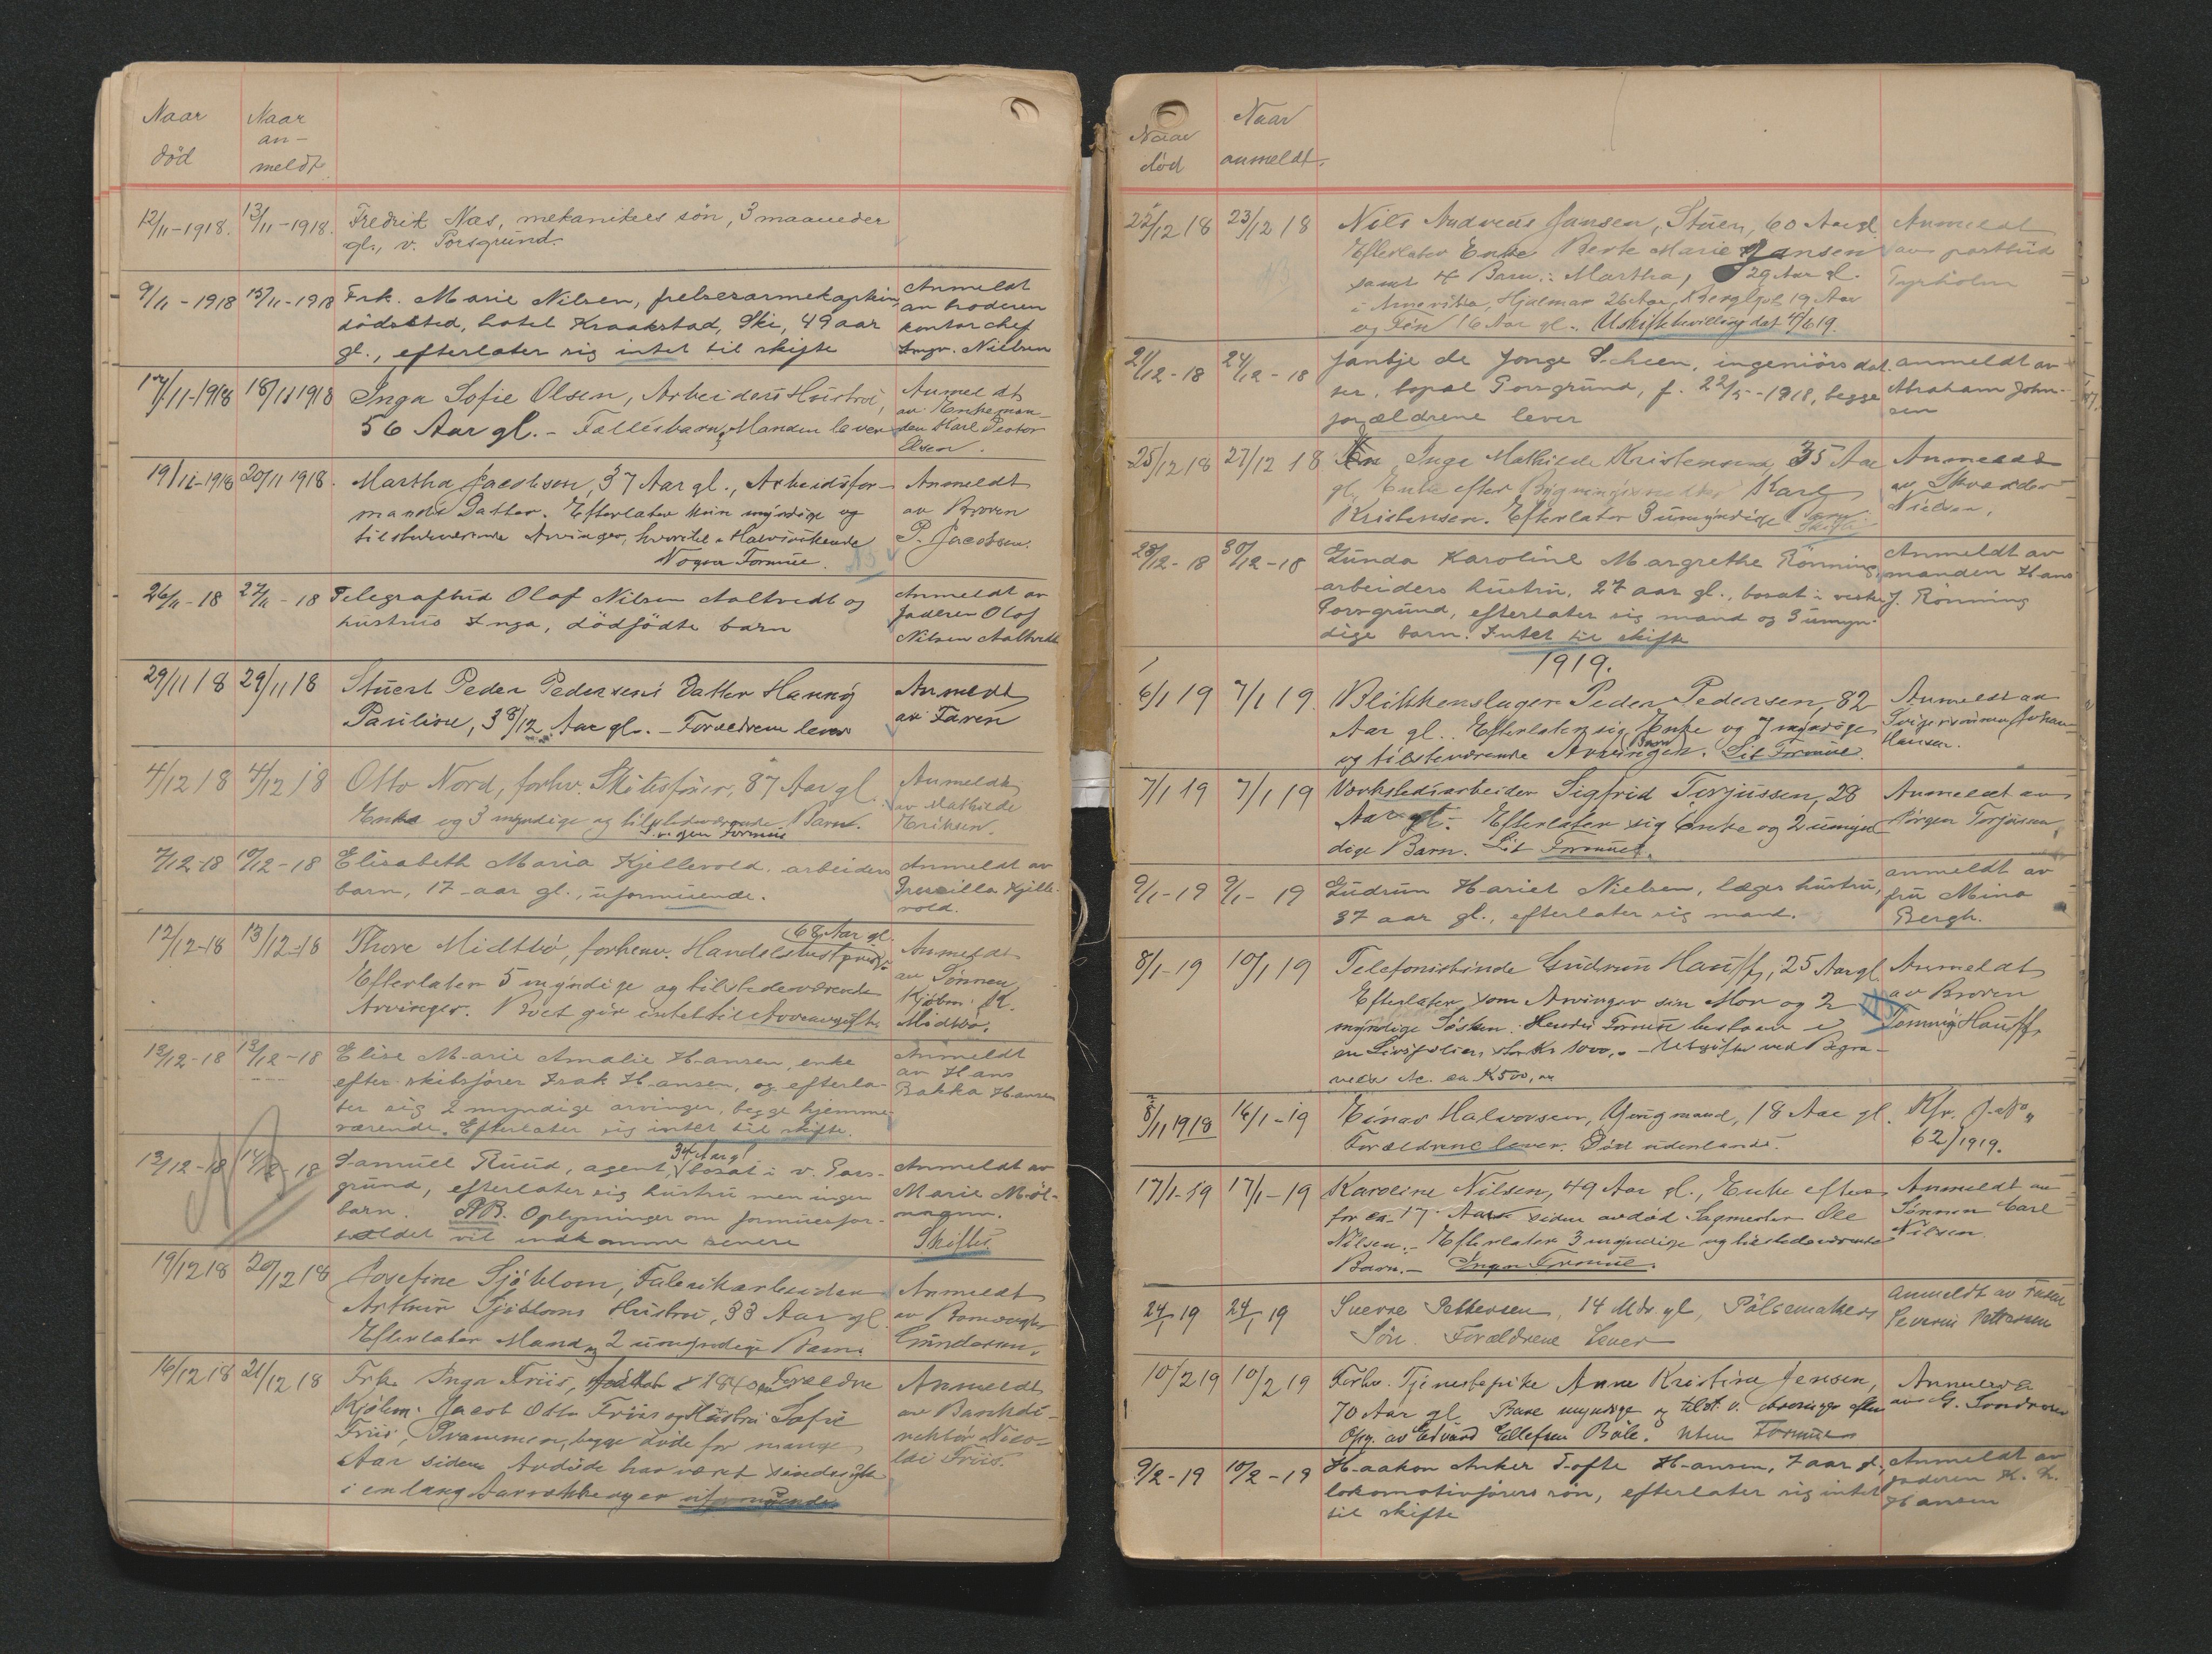 Naar
død
Naar
an-
meldt.
12/11-1918. 13/11-1918. Fredrik Næs, mekanikers søn, 3 maaneder
gl., v. Porsgrund.
9/11-1918 15/11-1918 Frk. Marie Nilsen, frelsesarmekaptein,
dødssted, hotel Kraakstad, Ski, 49 aar
gl., efterlater sig intet til skifte
Anmeldt
av broderen
kontorchef
Nielsen
17/11-1918 18/11 1918 Inga Sofie Olsen, Arbeiders Hustru,
56 Aar gl. - Fællesbarn, Manden lever
Anmeldt
av Enkeman-
den Karl Peder
Olsen.
19/11-1918 20/11 1918. Martha Jacobsen, 37 Aar gl., Arbeidsfor-
mands Datter. Efterlater kun myndige og
tilstedeværende Arvinger, hvorav Halvsøskende
Nogen Formue.
Anmeldt
av Broren
P. Jacobsen.
26/11-18 27/11-18 Telegrafbud Olaf Nilsen Aaltvedt og
hustrus Inga, dødfødte barn
Anmeldt av
faderen Olaf
Nilsen Aaltvedt
29/11 18 29/11 18 Stuert Peder Pedersens Datter Hanny
Pauline, 3 8/12 Aar gl. - Forældrene lever
Anmeldt
av Faren
4/12 18 4/12 18 Otto Nord, forhv. Skibsfører, 87 Aar gl.
Enke og 3 myndige og tilstedeværende Barn.
Ingen Formue
Anmeldt
av Mathilde
Eriksen.
7/12-18 10/12-18 Elisabeth Maria Kjellevold, arbeiders
barn, 17 aar gl., uformuende.
Anmeldt av
Kjelle-
vold.
12/12-18 13/12-18 Thore Midtbø, forhenv. Handelsbestyrer
68 Aar gl.
Efterlater 5 myndige og tilstedeværende
Arvinger. Boet gir intet til Arveavgift.
Anmeldt
av Sønnen
Kjøbm. K.
Midtbø.
13/12-18 13/12-18 Elise Marie Amalie Hansen, enke
efter skibsfører Isak Hansen, og efterla-
ter sig 2 myndige arvinger, begge hjemme-
værende. Efterlater sig intet til skifte.
Anmeldt
av Hans
Bakka Hansen
13/12-18 14/12-18 Samuel Ruud, agent, 34 Aar gl bosat i v. Pors-
grund, efterlater sig hustru men ingen
barn. NB. Oplysninger om formuesfor-
holdet vil indkomme senere
Anmeldt av
Marie Møl-
Skifte.
19/12 18 20/12 18 Josefine Sjöblom, Fabrikarbeider
Arthur Sjöbloms Hustru, 33 Aar gl.
Efterlater Mand og 2 umyndige Barn.
Anmeldt
av
Gundersen.
16/12 18 21/12 18 Frk. Inga Friis, født 1840 Forældre
Kjøbm. Jacob Otto Friis og Hustru Sofie
Friis, Svammen, begge døde for mange
Aar siden. Avdøde har været sindssyk
i en lang Aarrække og er uformuende
Anmeldt
av Bankdi-
rektør Nico-
lai Friis.
Naar
død
Naar
anmeldt.
22/12 18 23/12 18 Nils Andreas Jansen, Stuer, 60 Aar gl.
Efterlater Enke Berte Marie Jansen
samt 4 Barn: Martha, 29 Aar gl.
i Amerika, Hjalmar 26 Aar, Bergljot 19 Aar
og Finn 16 Aar gl. Uskiftebevilling dat 4/6 19.
Anmeldt
av postbud
Tyrholm
21/12-18 24/12-18 Jantje de Jonge Scheen, ingeniørs dat-
ter, bopæl Porsgrund, f. 22/5-1918, begge
forældrene lever
anmeldt av
Abraham John-
sen
25/12 18 27/12 18 Inge Mathilde Kristensen, 35 Aar
gl., Enke efter Bygningssnedker Karl
Kristensen. Efterlater 3 umyndige Barn.
Skifte
Anmeldt
av Skrædder
Nielsen.
28/12-18 30/12-18 Gunda Karoline Margrethe Rønning,
arbeiders hustru, 27 aar gl., bosat i vestre
Porsgrund, efterlater sig mand og 3 umyn-
dige barn. Intet til skifte
Anmeldt av
manden Hans
J. Rønning
1919.
6/1 19 7/1 19 Blikkenslager Peder Pedersen, 82
Aar gl. Efterlater sig Enke og 7 myndige
og tilstedeværende Barn Arvinger. Lit Formue.
Anmeldt av
Svigersønnen Johan
Hansen.
7/1 19 7/1 19 Verkstedsarbeider Sigfrid Torjussen, 28
Aar gl. Efterlater sig Enke og 2 umyn-
dige Barn. Lit Formue.
Anmeldt av
Jørgen Torjussen,
9/1-19 9/1-19 Gudrun Hariet Nielsen, læges hustru,
37 aar gl., efterlater sig mand.
anmeldt av
fru Mina
Bergh.
8/1-19 10/1 19 Telefonistinde Gudrun Hauff, 25 Aar gl
Efterlater som Arvinger sin Mor og 2
myndige Søsken. Hendes Formue bestaar i
en Livspolice, stor Kr 1000,00 - Utgifter ved Begra-
velse etc. ca K 500,00
Anmeldt
av Broren
Hauff,
8/11 1918 14/1-19 Einar Halvorsen, Yungmand, 18 Aar gl.
Forældrene lever. Død utenlands.
Kfr. J.No
62/1919.
17/1-19 17/1-19 Karoline Nilsen, 49 Aar gl., Enke efter
for ca. 17 Aar siden avdød Sagmester Ole
Nilsen. - Efterlater 3 myndige og tilstedeværende
Barn. - Ingen Formue.
Anmeldt av
Sønnen Carl
Nilsen.
24/1 19 24/1 19 Sverre Pettersen, 14 Mdr. gl, Pølsemakers
Søn. Forældrene Lever
Anmeldt av Faren
Severin Pettersen
10/2 19 10/2 19 Forhv. Tjenestepike Anne Kristine Jensen,
70 Aar gl. Bare myndige og tilst. v. arvinger efter
Opg. av Edvard Ellefsen Bøle. Uten Formue
Anmeldt
av G.
9/2-19 10/2-19 Haakon Anker Tofte Hansen, 7 aar gl.,
lokomotivførers søn, efterlater sig intet
til skifte
Anmeldt av
faderen K. K.
Hansen